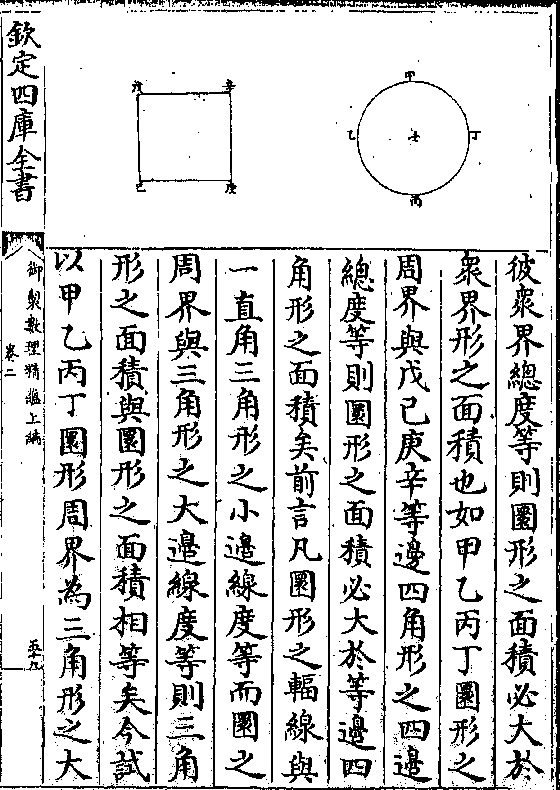 甲
乙
丁
壬
丙
癸
辛
己
庚
彼衆界總度等則圜形之面積必大於
衆界形之面積也如甲乙丙丁圜形之
周界與戊己庚辛等邊四角形之四邊
總度等則圜形之面積必大於等邊四
角形之面積矣前言凡圜形之輻線與
一直角三角形之小邊線度等而圜之
周界與三角形之大邊線度等則三角
形之面積與圜形之面積相等矣今試
以甲乙丙丁圜形周界為三角形之大
欽定四庫全書
御製數理精蘊上編
卷二